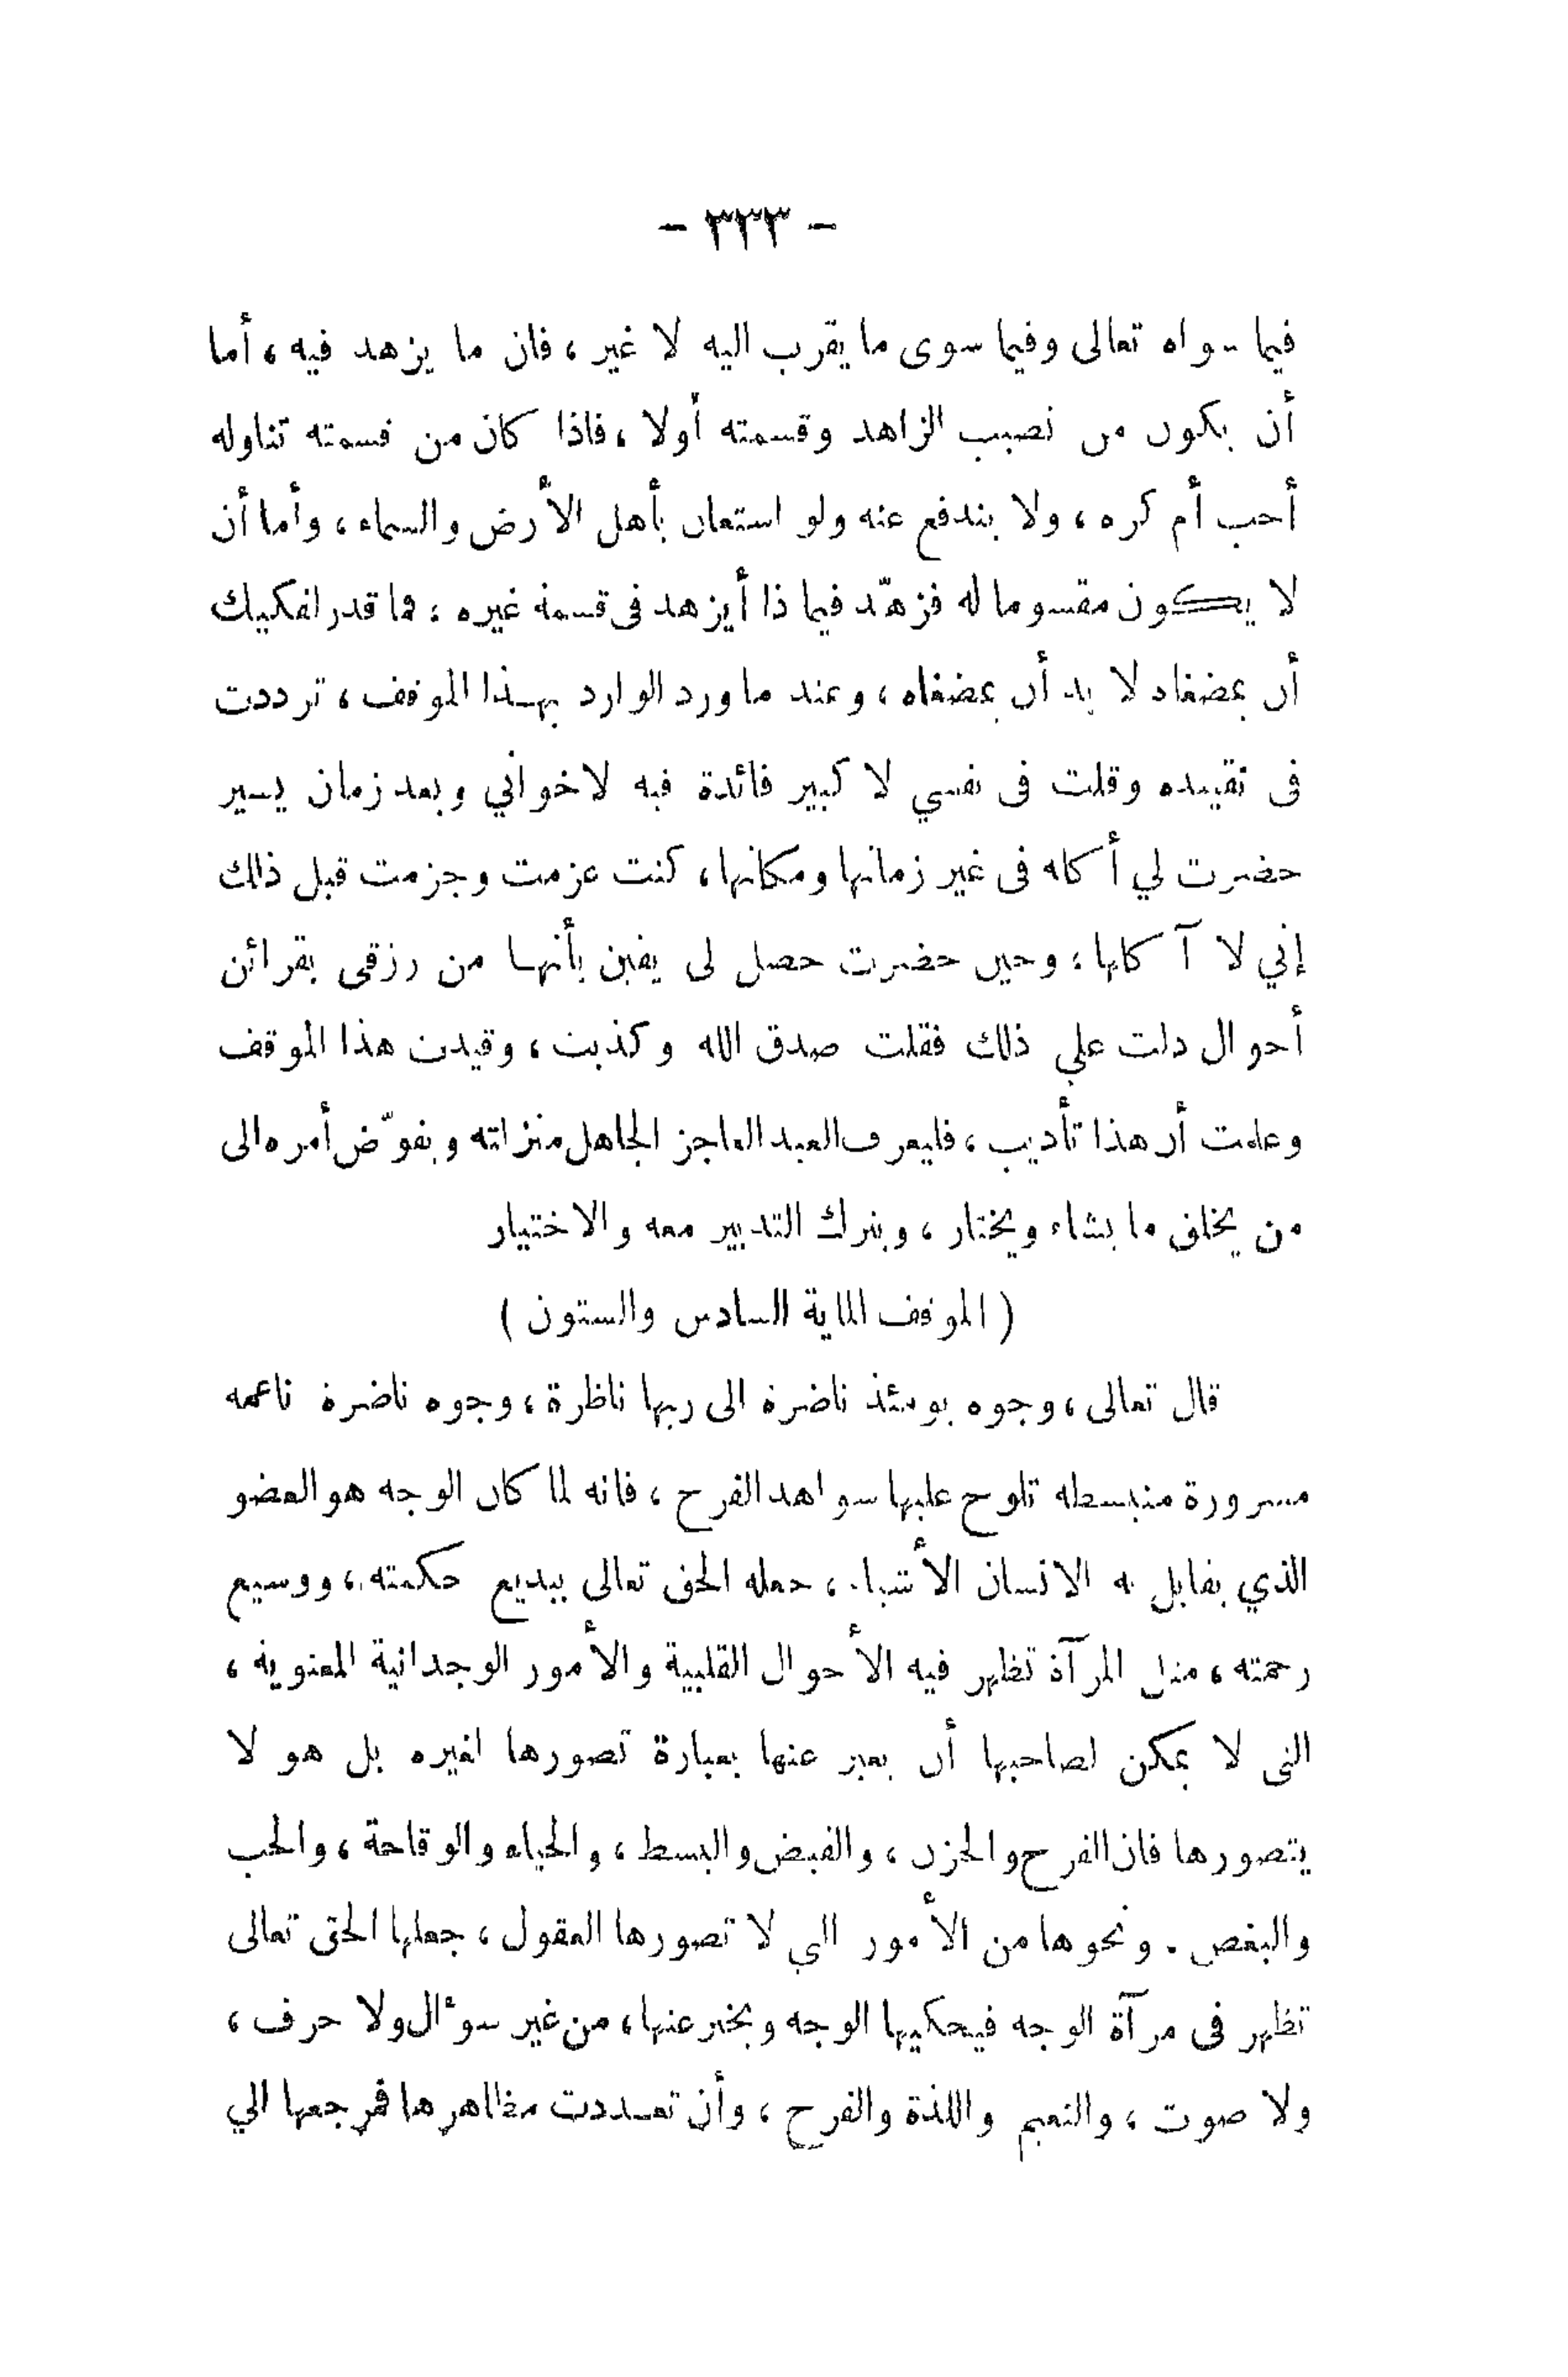 - ٣٣٣ -
فيما سواه تعالى وفيما سوى ما يقرب اليه لا غير ، فان ما يزهد فيه ، أما
أن يكون من نصيب الزاهد وقسمته أولا ، فاذا كان من قسمته تناوله
أحب أم كره ، ولا يندفع عنه ولو استعان بأهل الأرض والسماء ، وأما أن
لا يكون مقسوما له فزهّد فيما ذا أيزهد فى قسمة غيره ؛ فما قدر لفكيك
أن يمضغاه لا بد أن يمضغاه ، وعند ما ورد الوارد بهذا الموقف ، ترددت
فى تقييده وقلت فى نفسي لا كبير فائدة فيه لاخواني وبعد زمان يسير
حضرت لي أكله فى غير زمانها ومكانها ، كنت عزمت وجزمت قبل ذلك
إني لا آكلها ؛ وحين حضرت حصل لى يقين بأنها من رزقى بقرائن
أحوال دلت علي ذلك فقلت صدق الله وكذبت ، وقيدت هذا الموقف
وعلمت أن هذا تأديب ، فليعرف العبد العاجز الجاهل منزلته ويفوّض أمره الى
من يخلق ما يشاء ويختار ، ويترك التدبير معه والاختيار
( الموقف الماية السادس والستون )
قال تعالى ، وجوه يومئذ ناضرة الى ربها ناظرة ، وجوه ناضرة ناعمه
مسرورة منبسطه تلوح عليها سواهد الفرح ، فانه لما كان الوجه هو العضو
الذي يقابل به الانسان الأشياء ، جعله الحق تعالى ببديع حكمته ، ووسيع
رحمته ، مثل المرآة تظهر فيه الأحوال القلبية والأمور الوجدانية المعنوية ،
التى لا يمكن لصاحبها أن يعبر عنها بعبارة تصورها لغيره بل هو لا
يتصورها فان الفرح والحزن ، والقبض والبسط ، والحياء والوقاحة ، والحب
والبغض . ونحوها من الأمور التي لا تصورها العقول ، جعلها الحق تعالى
تظهر فى مرآة الوجه فيحكيها الوجه ويخبر عنها ، من غير سوءال ولا حرف ،
ولا صوت ، والنعيم واللذة والفرح ، وأن تعددت مظاهرها فمرجعها الي